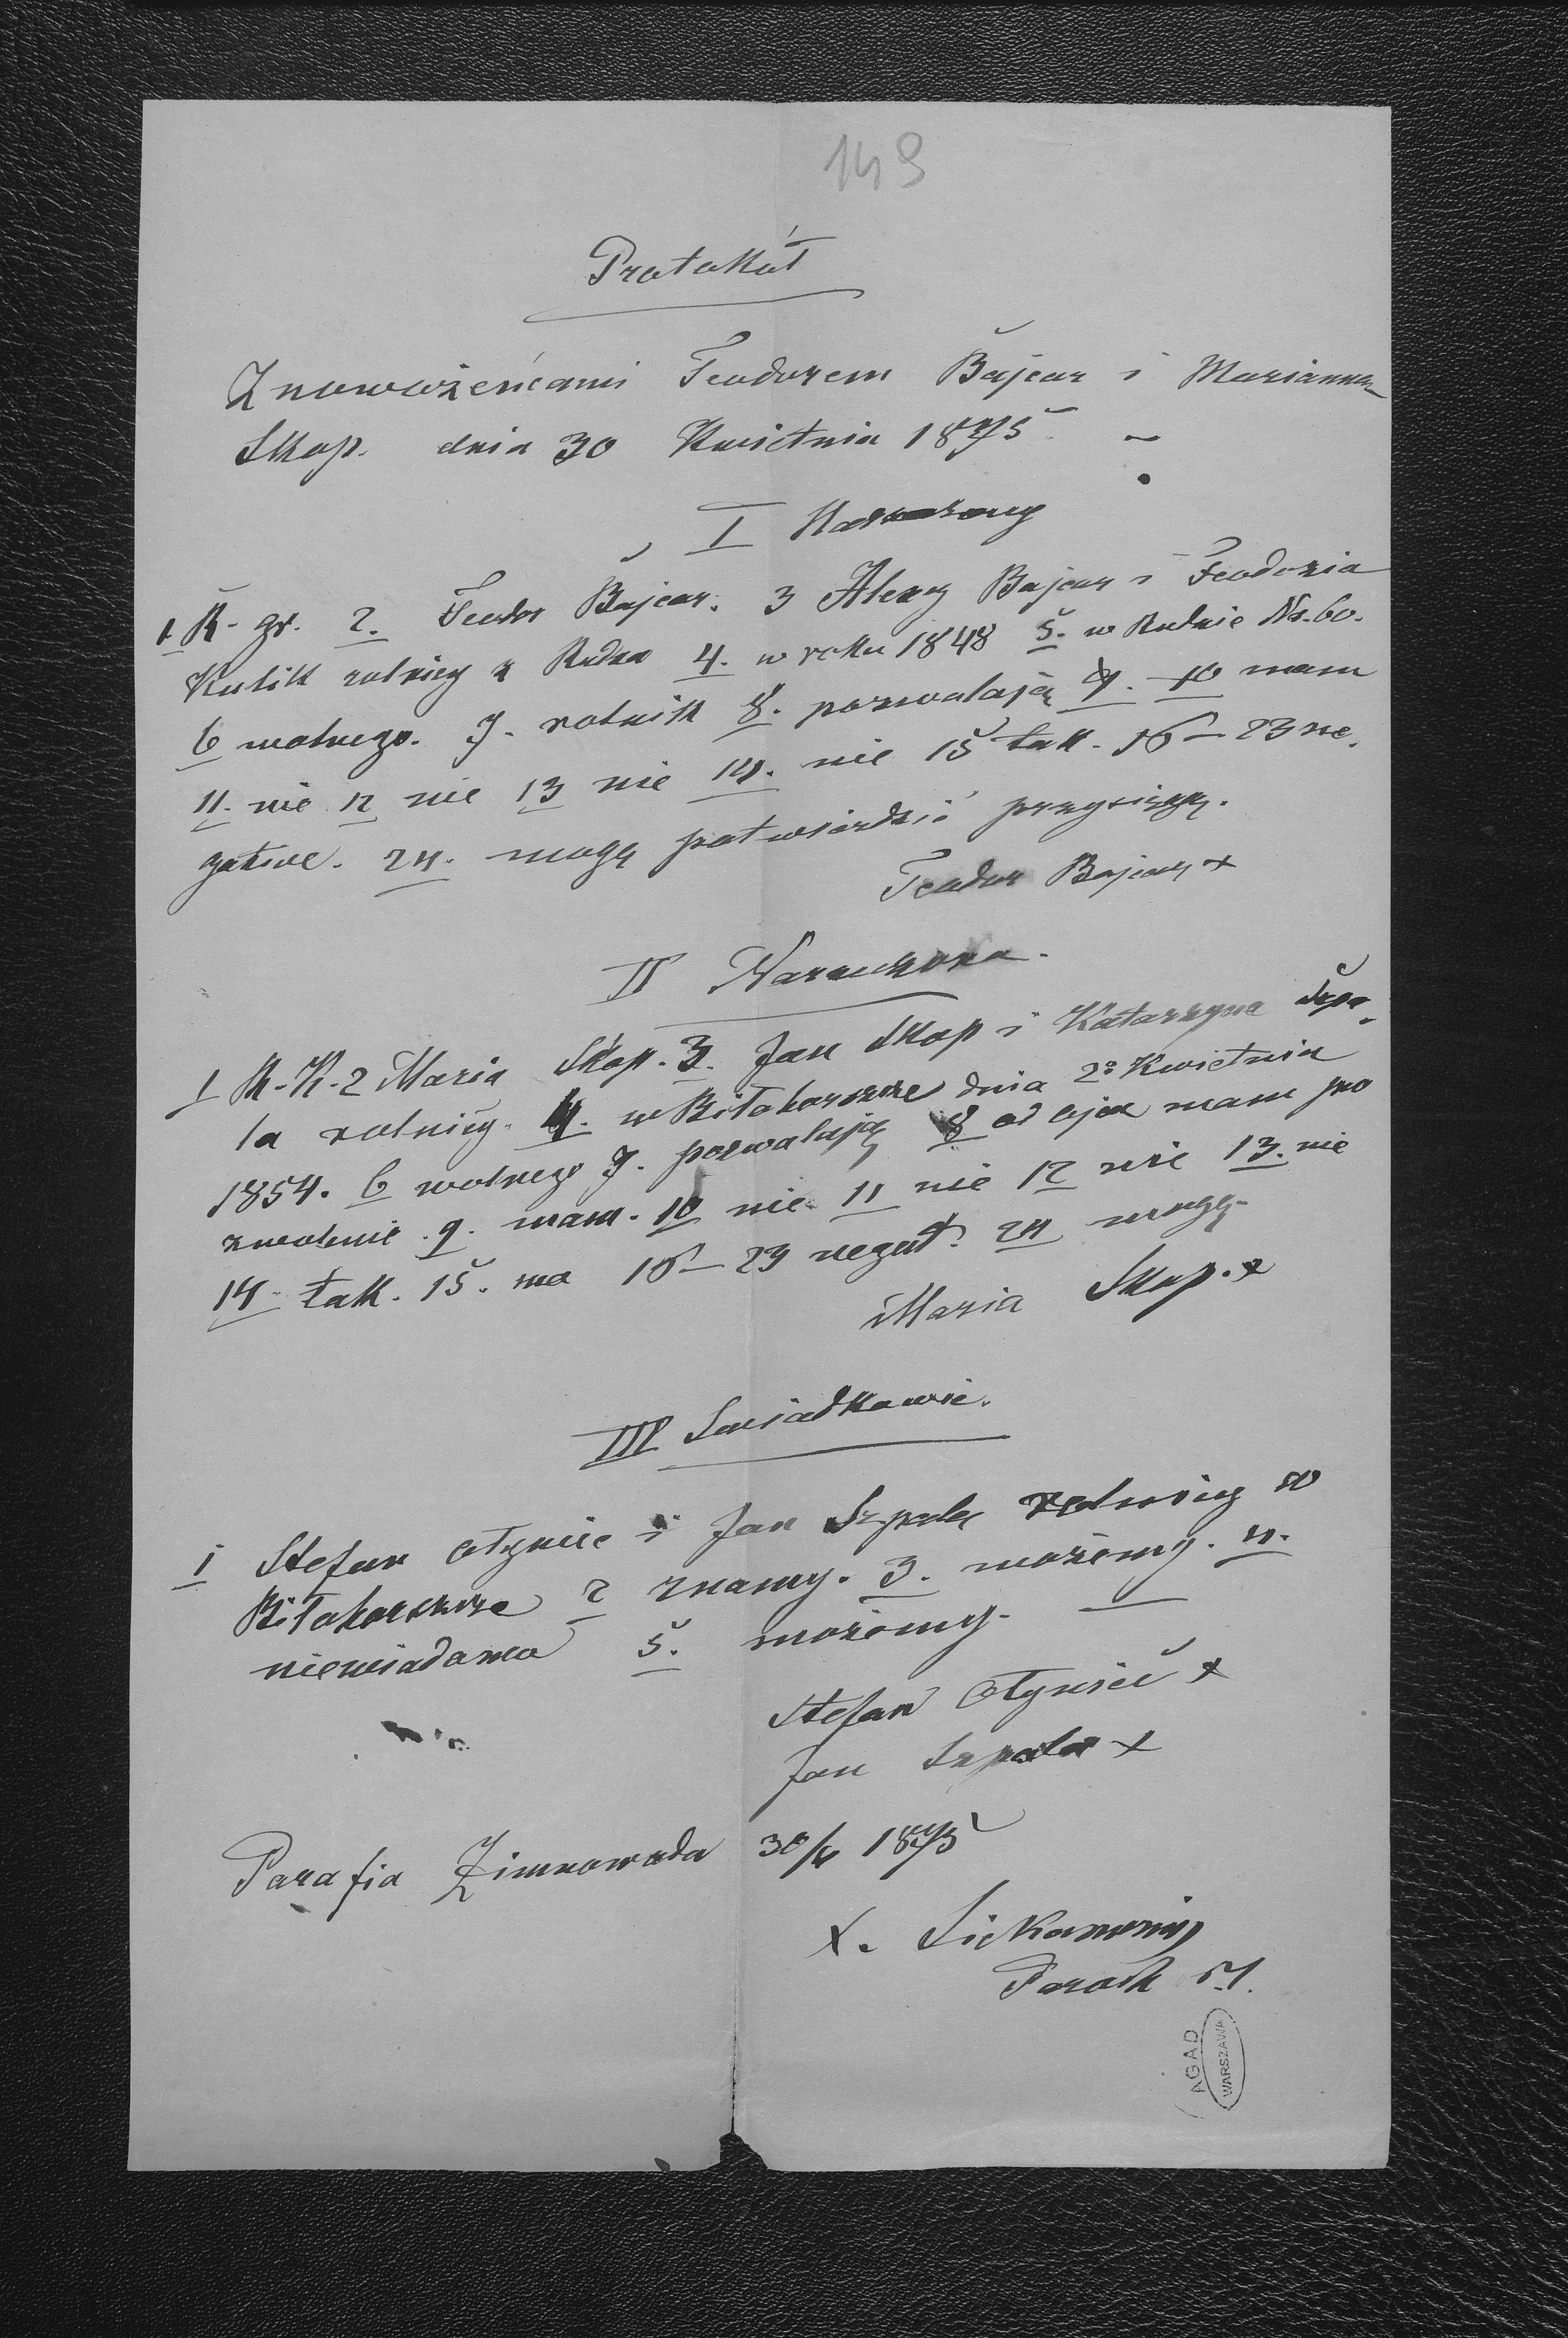 149
Protokół
Z nowożeńcami Teodorem Bajcar i Marianną
Skop. dnia 30 Kwietnia 1875
I Narzeczony
1 K. gr. 2. Teodor Bajcar. 3 Alexy Bajcar i Teodozia
Kulik rolnicy z Rudna 4. w roku 1848 5. w Rudnie Nr. 60.
6 wolnego. 7. rolnik 8. pozwalają 9. 10 mam
11. nie 12 nie 13 nie 14. nie 15 tak. 16 - 23 ne
gative. 24. mogę potwierdzić przysięgą.
Teodor Bajcar +
II Narzeczona.
1 R. K. 2 Maria Skop. 3. Jan Skop i Katarzyna Szpa
la rolnicy. 4. w Biłohorszcze dnia Kwietnia
1854. 6 wolnego 7. pozwalają 8 od ojca mam po
zwolenie. 9. mam. 10 nie 11 nie 12 nie 13. nie
14. tak. 15. ma 16 - 23 negat. 24 mogę
Maria Skop. +
III Swiadkowie.
1 Stefan Ołyniec i Jan Szpala rolnicy w
Biłohorszcze 2 znamy. 3. możemy. 4.
niewiadomo 5. możemy.
Stefan Ołynieć +
Jan Szpala +
Parafia Zimnowoda 30/4 1875
X.
Paroch
AGAD
WARSZAWA